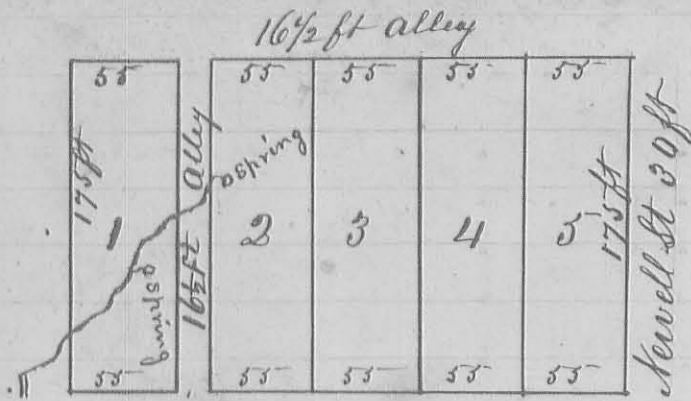 16½ ft alley
55 55 55 55 55
175 ft
1
16½ ft alley
a spring
a spring
2 3 4 5
175 ft
Newell St 30 ft
55 55 55 55 55